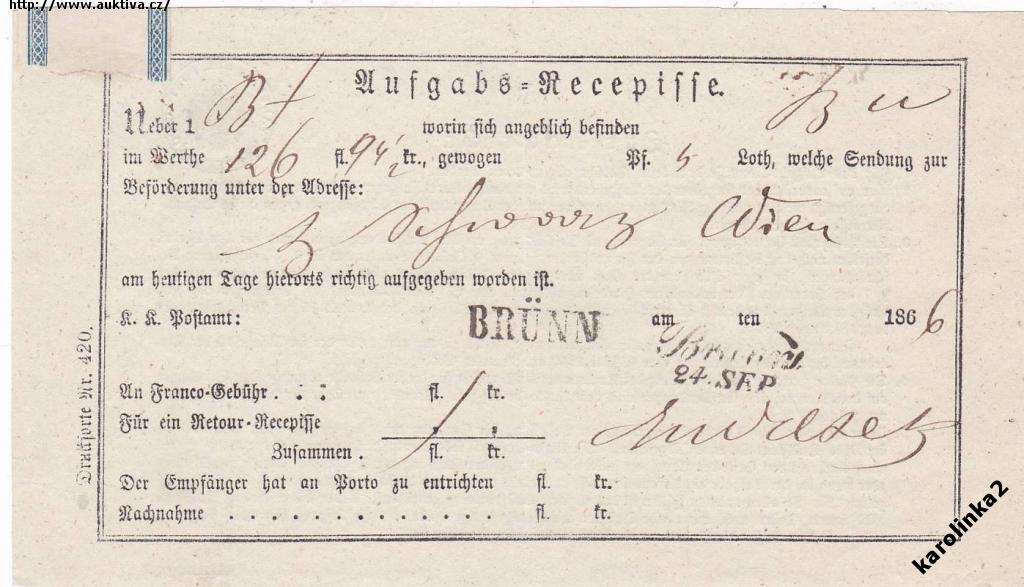 http://www.auktiva.cz/
Aufgabs-Recepisse.
Ueber 1 worin sich angeblich befinden
im Werthe 126 fl. 94 1/2 kr., gewogen Pf. Loth, welche Sendung zur
Beförderung unter der Adresse:
Schwarz Wien
am heutigen Tage hierorts richtig aufgegeben worden ist.
K. K. Postamt: BRÜNN am ten 1866
Brünn
24. SEP
An Franco-Gebühr . . : fl. kr.
Für ein Retour-Recepisse
Zusammen . fl. kr.
Der Empfänger hat an Porto zu entrichten fl. kr.
Nachnahme . . . . . . . . . . . . . fl. kr.
Drucksorte Nr. 420.
karolinka2